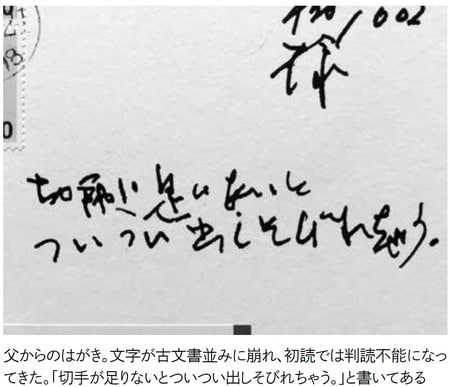 002
様
切手が足りないと
ついつい出しそびれちゃう。
父からのはがき。文字が古文書並みに崩れ、初読では判読不能になっ
てきた。「切手が足りないとついつい出しそびれちゃう。」と書いてある